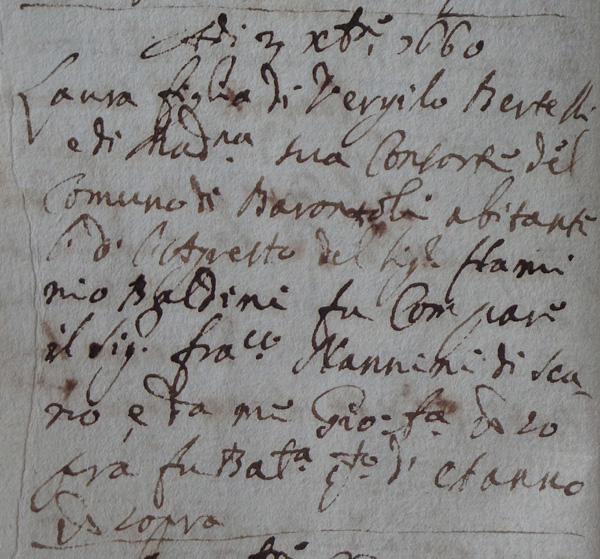 Adi 3 xbre 1660
Laura figlia di Vergilo Bertelli
e di Madna sua Consorte del
Comuno di Barontoli abitante
del Sigr flami
nio Baldini fu Compare
il Sig. fracco Nannini di Sca
no, e da me Gio: fa di so
pra fu Bata qto di et anno
di sopra